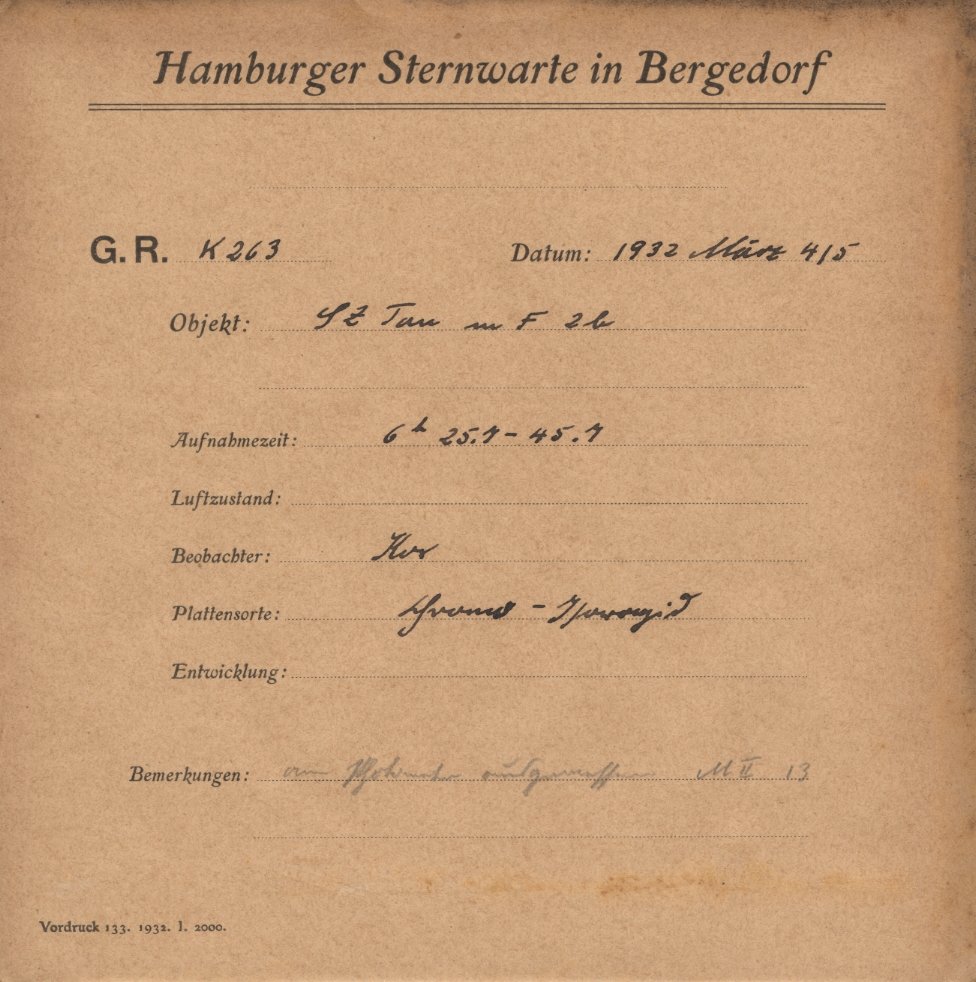 Hamburger Sternwarte in Bergedorf
G.R. K 263 Datum: 1932 März 4/5
Objekt: SZ Tau m F 2b
Aufnahmezeit: 6h 25.7 - 45.7
Luftzustand:
Beobachter: Kox
Plattensorte: Chromo - Isorapid
Entwicklung:
Bemerkungen: am Photometer ausgemessen M II 13
Vordruck 133. 1932. I. 2000.